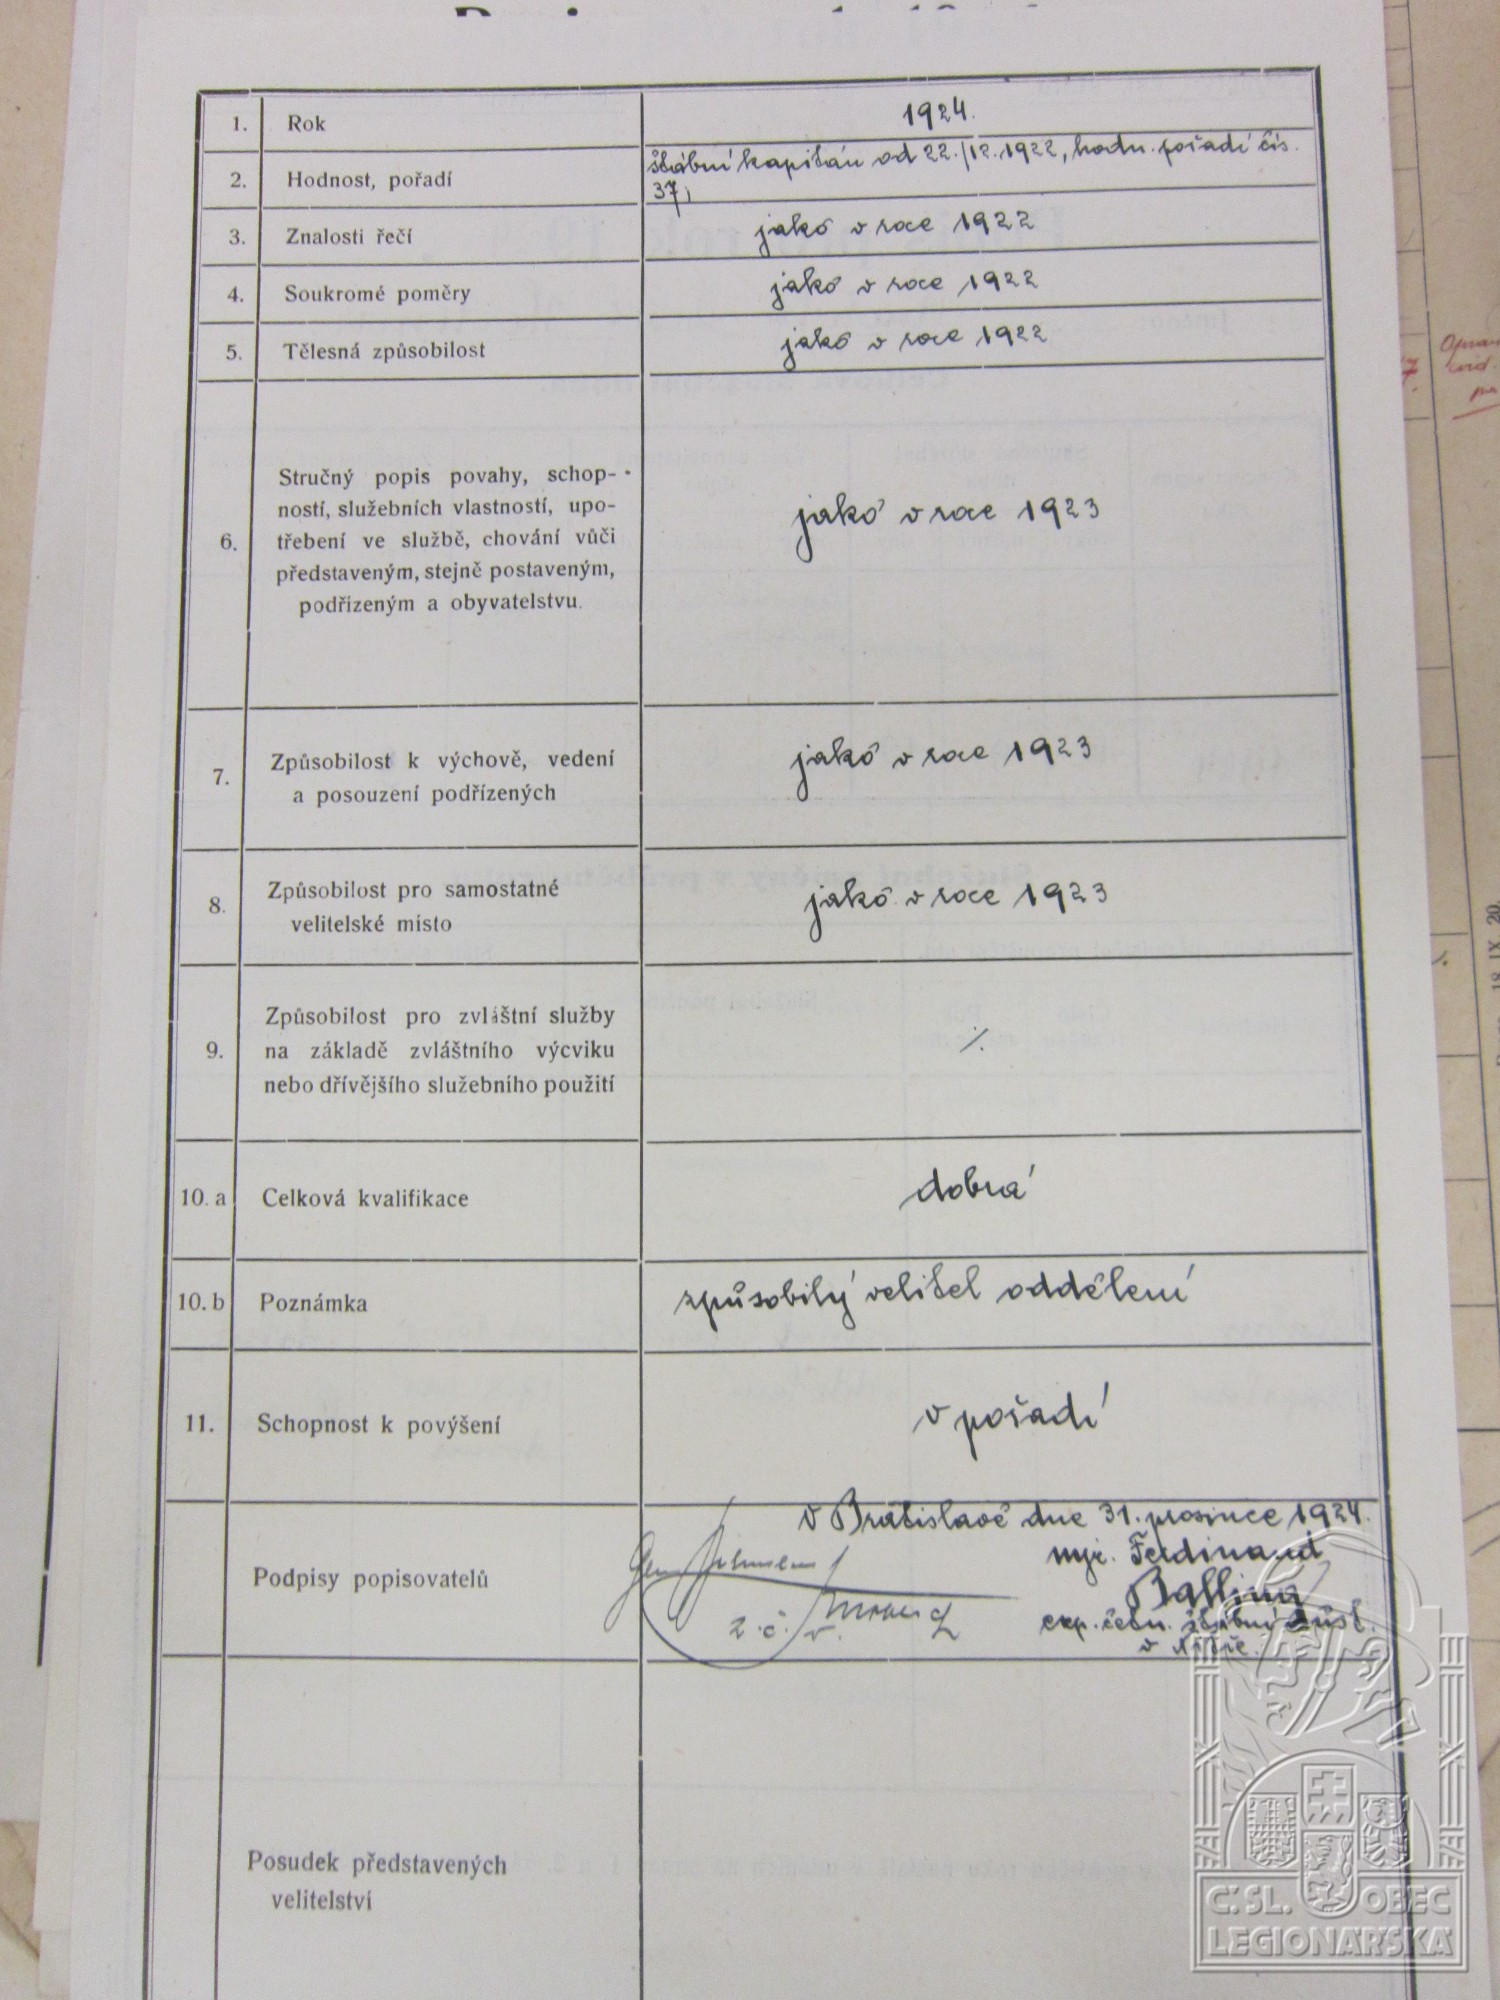 1. Rok 1924.
2. Hodnost, pořadí štábní kapitán od 22./12.1922, hodn. pořadí čís.
37,
3. Znalosti řečí jakó v roce 1922
4. Soukromé poměry jakó v roce 1922
5. Tělesná způsobilost jakó v roce 1922
Stručný popis povahy, schop-
ností, služebních vlastností, upo-
6. třebení ve službě, chování vůči jakó v roce 1923
představeným, stejně postaveným,
podřízeným a obyvatelstvu.
7. Způsobilost k výchově, vedení jakó v roce 1923
a posouzení podřízených
8. Způsobilost pro samostatné jakó v roce 1923
velitelské místo
Způsobilost pro zvláštní služby
9. na základě zvláštního výcviku ./.
nebo dřívějšího služebního použití
10. a Celková kvalifikace dobrá
10. b Poznámka způsobilý velitel oddělení
11. Schopnost k povýšení v pořadí
v Bratislavě dne 31. prosince 1924.
Podpisy popisovatelů mjr. Ferdinand
Balling
z. č. v.
exp. četn. štábní
v
Posudek představených
velitelství
18 IX 20.
Č.SL. OBEC
LEGIONÁŘSKÁ